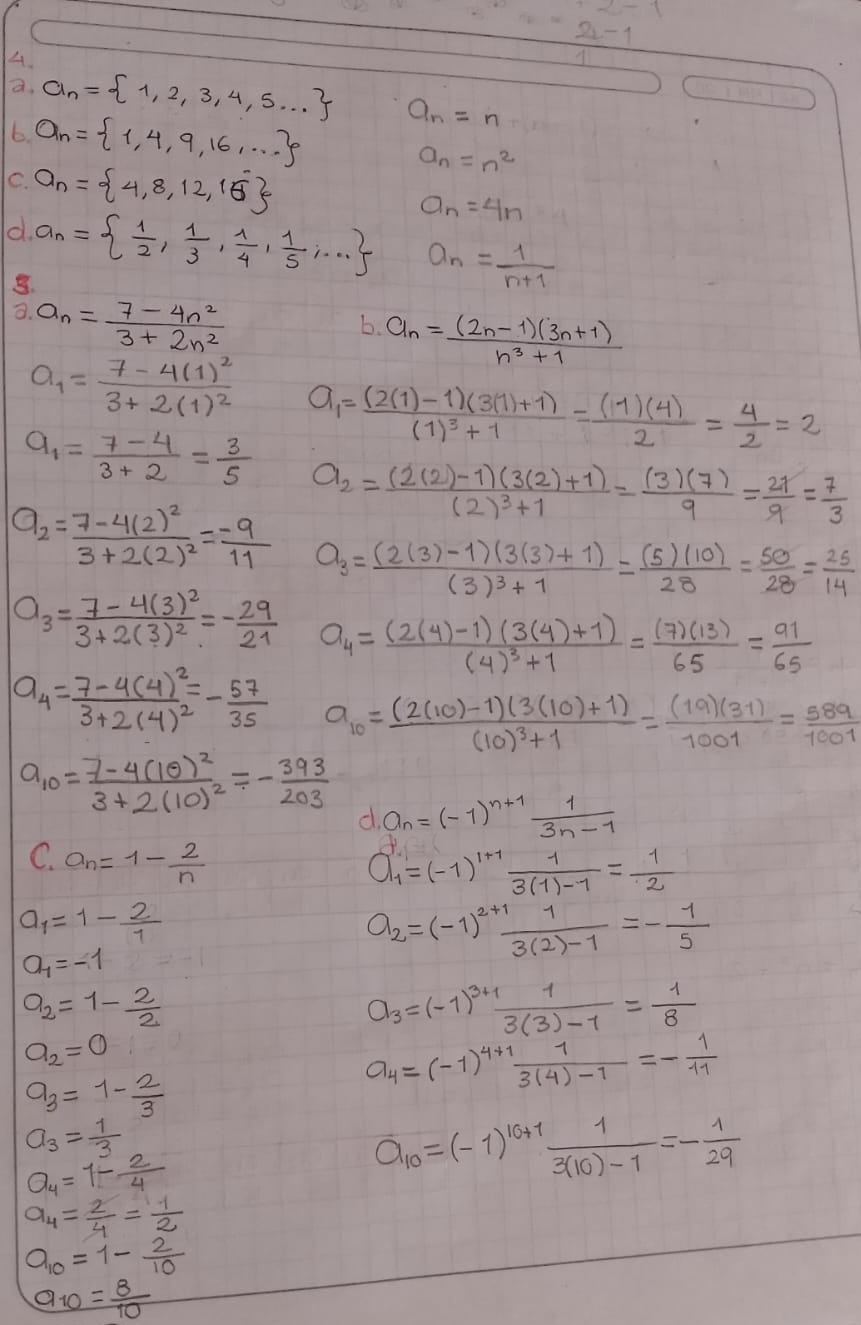 2-1
2-1
1
4.
a. aₙ = { 1, 2, 3, 4, 5... } aₙ = n
b. aₙ = { 1, 4, 9, 16, ... } aₙ = n²
c. aₙ = { 4, 8, 12, 16 } aₙ = 4n
d. aₙ = { 1/2, 1/3, 1/4, 1/5, ... } aₙ = 1/(n+1)
5.
a. aₙ = (7 - 4n²)/(3 + 2n²)
a₁ = (7 - 4(1)²)/(3 + 2(1)²)
a₁ = (7 - 4)/(3 + 2) = 3/5
a₂ = (7 - 4(2)²)/(3 + 2(2)²) = -9/11
a₃ = (7 - 4(3)²)/(3 + 2(3)²) = -29/21
a₄ = (7 - 4(4)²)/(3 + 2(4)²) = -57/35
a₁₀ = (7 - 4(10)²)/(3 + 2(10)²) = -393/203
b. aₙ = (2n - 1)(3n + 1)/(n³ + 1)
a₁ = (2(1) - 1)(3(1) + 1)/((1)³ + 1) = (1)(4)/2 = 4/2 = 2
a₂ = (2(2) - 1)(3(2) + 1)/((2)³ + 1) = (3)(7)/9 = 21/9 = 7/3
a₃ = (2(3) - 1)(3(3) + 1)/((3)³ + 1) = (5)(10)/28 = 50/28 = 25/14
a₄ = (2(4) - 1)(3(4) + 1)/((4)³ + 1) = (7)(13)/65 = 91/65
a₁₀ = (2(10) - 1)(3(10) + 1)/((10)³ + 1) = (19)(31)/1001 = 589/1001
C. aₙ = 1 - 2/n
a₁ = 1 - 2/1
a₁ = -1
a₂ = 1 - 2/2
a₂ = 0
a₃ = 1 - 2/3
a₃ = 1/3
a₄ = 1 - 2/4
a₄ = 2/4 = 1/2
a₁₀ = 1 - 2/10
a₁₀ = 8/10
d. aₙ = (-1)ⁿ⁺¹ 1/(3n - 1)
a₁ = (-1)¹⁺¹ 1/(3(1) - 1) = 1/2
a₂ = (-1)²⁺¹ 1/(3(2) - 1) = -1/5
a₃ = (-1)³⁺¹ 1/(3(3) - 1) = 1/8
a₄ = (-1)⁴⁺¹ 1/(3(4) - 1) = -1/11
a₁₀ = (-1)¹⁰⁺¹ 1/(3(10) - 1) = -1/29